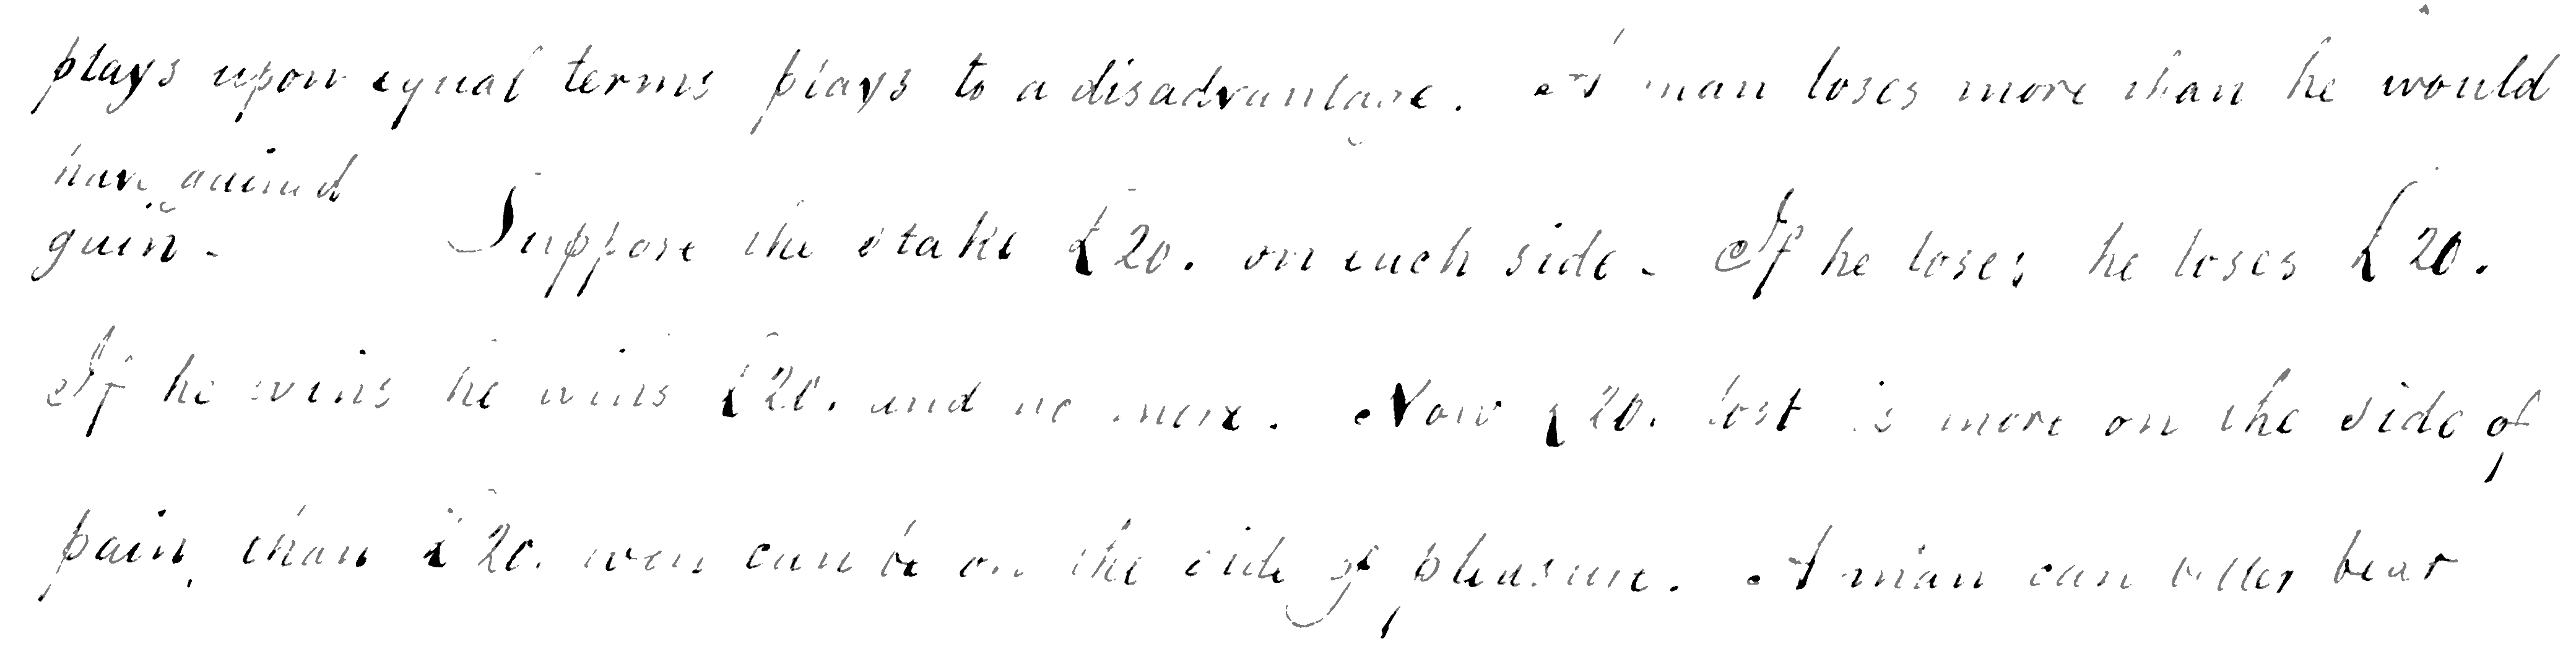 plays upon equal terms plays to a disadvantage. A man loses more than he would
have gained
gain - Suppose the stake £20. on each side - If he loses he loses £20.
If he wins he wins £20. and no more. Now £20. lost is more on the side of
pain, than £20. won can be on the side of pleasure. A man can better bear